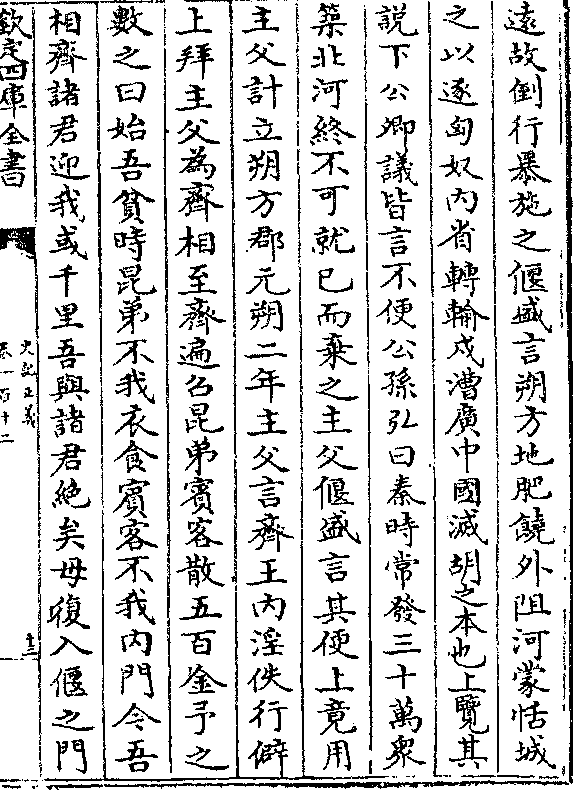 遠故倒行暴施之偃盛言朔方地肥饒外阻河蒙恬城
之以逐匈奴内省轉輸戍漕廣中國滅胡之本也上覽其
説下公卿議皆言不便公孫弘曰秦時常發三十萬衆
築北河終不可就已而棄之主父偃盛言其便上竟用
主父計立朔方郡元朔二年主父言齊王内淫佚行僻
上拜主父為齊相至齊遍召昆弟賔客散五百金予之
數之曰始吾貧時昆弟不我衣食賔客不我内門今吾
相齊諸君迎我或千里吾與諸君絶矣毋復入偃之門
欽定四庫全書
史記正義
卷一百十二
十三